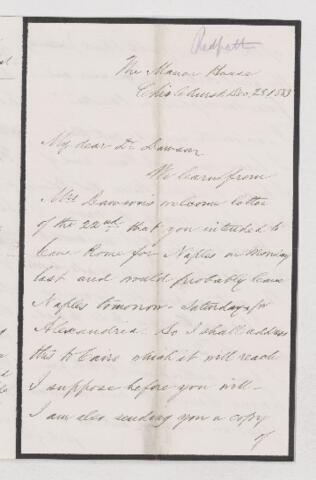 Redpath
The Manor House
Chislehurst Dec. 28 1883
My dear Dr Dawson
We learn from
Mrs Dawson's welcome letter
of the 22nd that you intended to
leave Rome for Naples on Monday
last and would probably leave
Naples tomorrow - Saturday for
Alexandria. So I shall address
this to Cairo which it will reach
I suppose before you will -
I am also sending you a copy
of